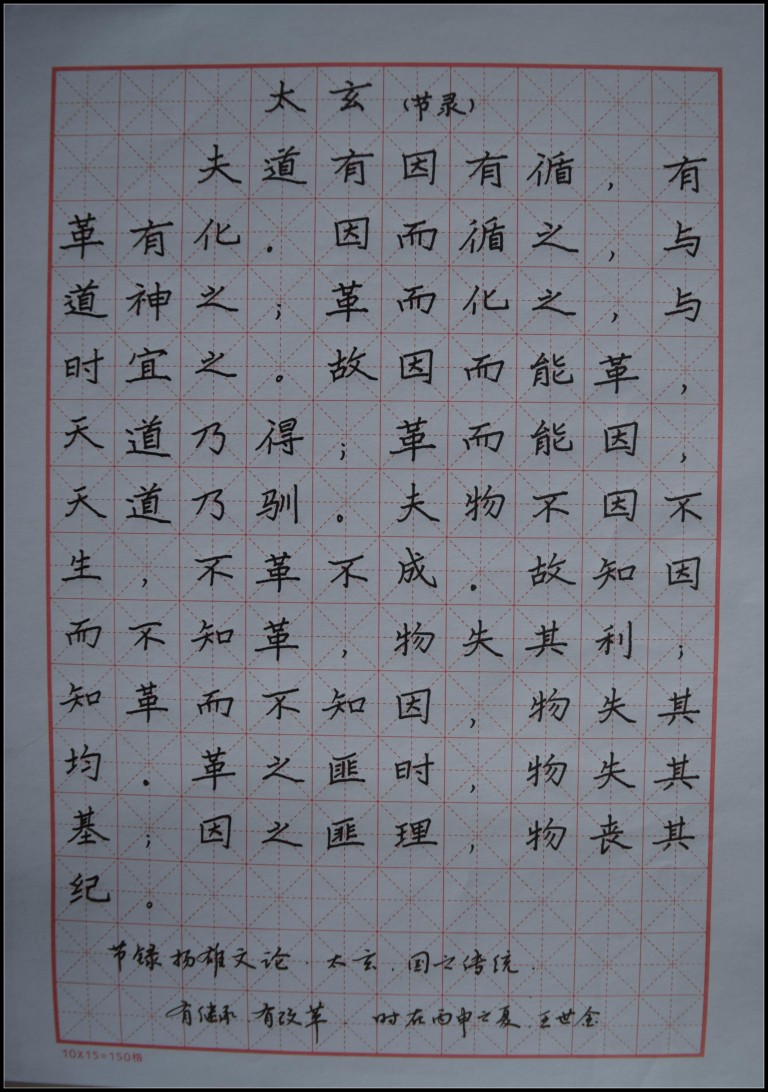 太玄（节录）
夫道有因有循，有
革有化。因而循之，与
道神之；革而化之，与
时宜之。故因而能革，
天道乃得；革而能因，
天道乃驯。夫物不因不
生，不革不成。故知因
而不知革，物失其利；
知革而不知因，物失其
均。革之匪时，物失其
基；因之匪理，物丧其
纪。
节录扬雄文论．太玄．国之传统．
有继承．有改革．时在丙申之夏．王世全
10X15=150格